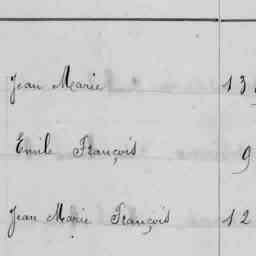 Jean Marie 13
Emile François 9
Jean Marie François 12